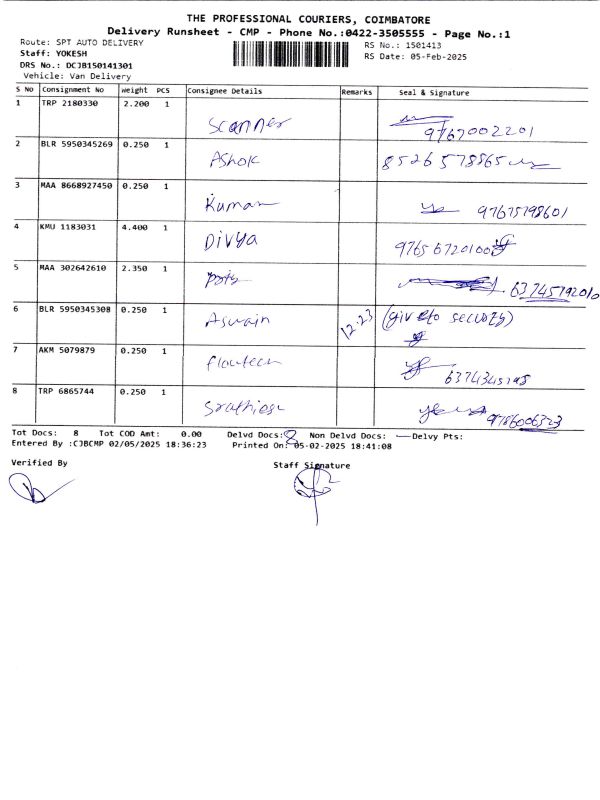 THE PROFESSIONAL COURIERS, COIMBATORE
Delivery Runsheet - CMP - Phone No.:0422-3505555 - Page No.:1
Route: SPT AUTO DELIVERY RS No.: 1501413
Staff: YOKESH RS Date: 05-Feb-2025
DRS No.: DCJB150141301
Vehicle: Van Delivery
S No Consignment No Weight PCS Consignee Details Remarks Seal & Signature
1 TRP 2180330 2.200 1 Scanner 9767002201
2 BLR 5950345269 0.250 1 Ashok 8526578865
3 MAA 8668927450 0.250 1 Kumar 97675798601
4 KMU 1183031 4.400 1 Divya 9765672010
5 MAA 302642610 2.350 1 63745792010
6 BLR 5950345308 0.250 1 Aswain 12.23 (give to security)
7 AKM 5079879 0.250 1 flowtech 6374345198
8 TRP 6865744 0.250 1 9786006323
Tot Docs: 8 Tot COD Amt: 0.00 Delvd Docs: 8 Non Delvd Docs: — Delvy Pts:
Entered By :CJBCMP 02/05/2025 18:36:23 Printed On: 05-02-2025 18:41:08
Verified By Staff Signature